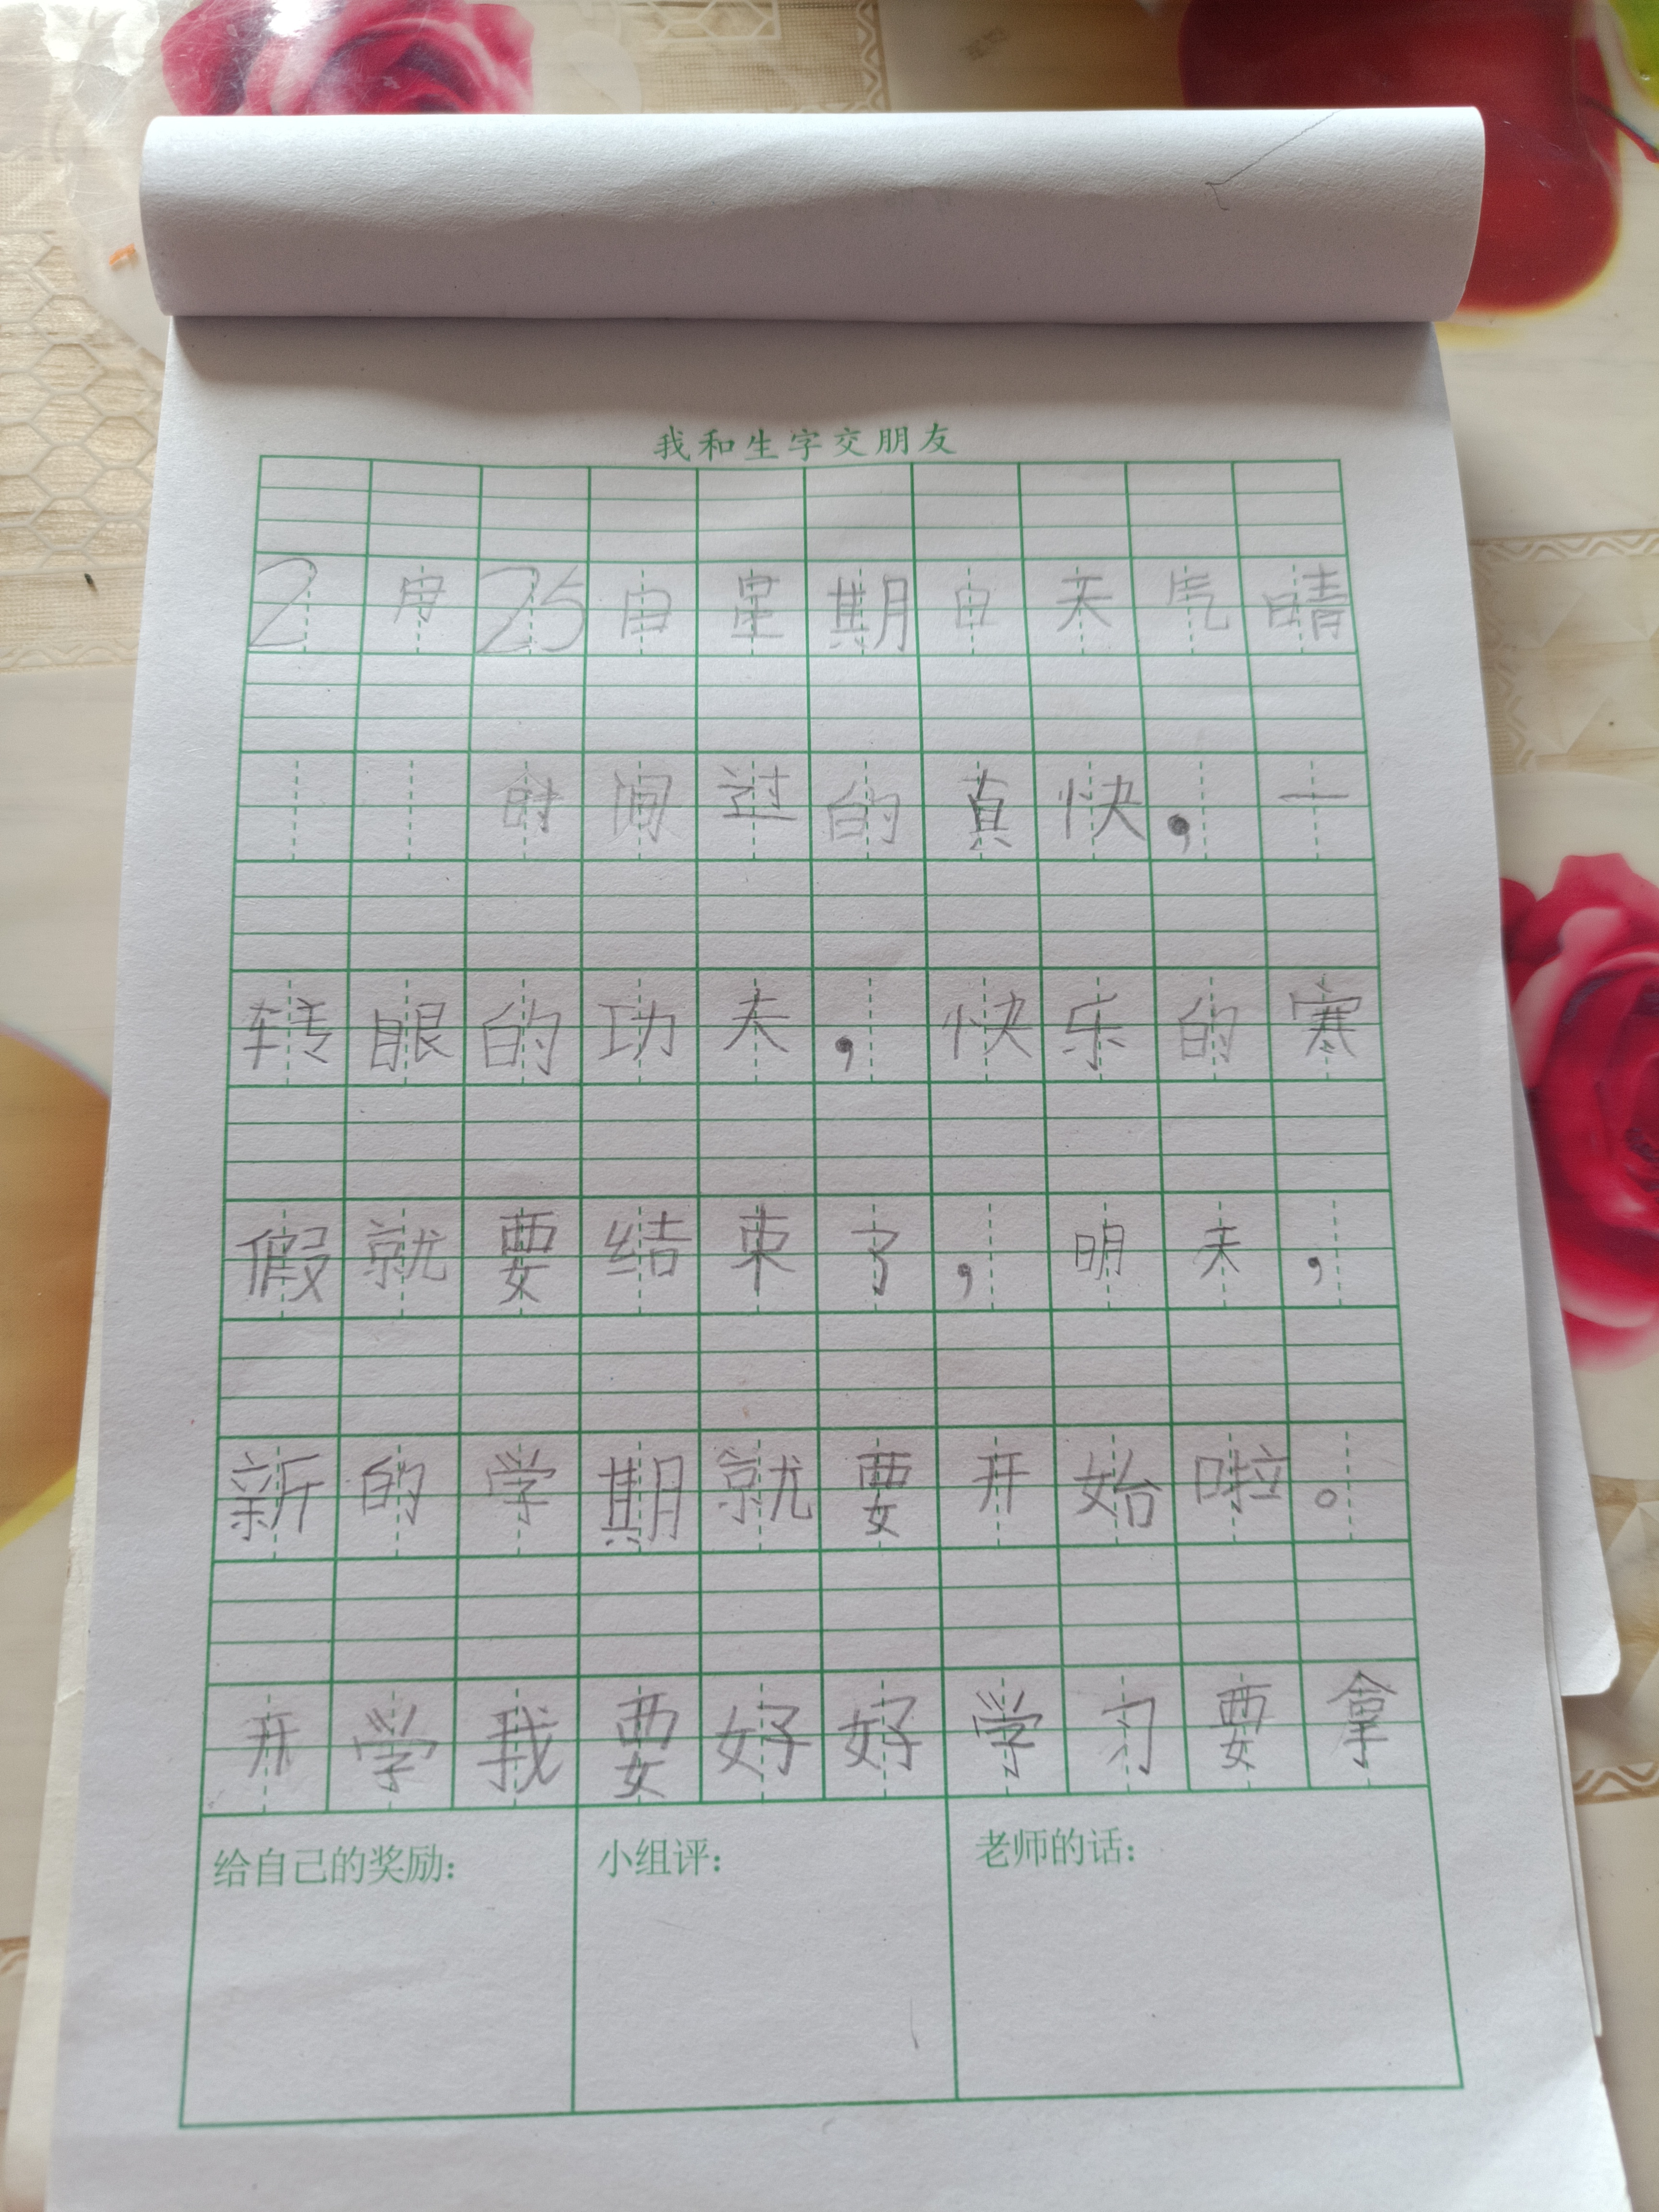 我和生字交朋友
2月25日星期日天气晴
时间过的真快，一
转眼的功夫，快乐的寒
假就要结束了，明天，
新的学期就要开始啦。
开学我要好好学习要拿
给自己的奖励：
小组评：
老师的话：